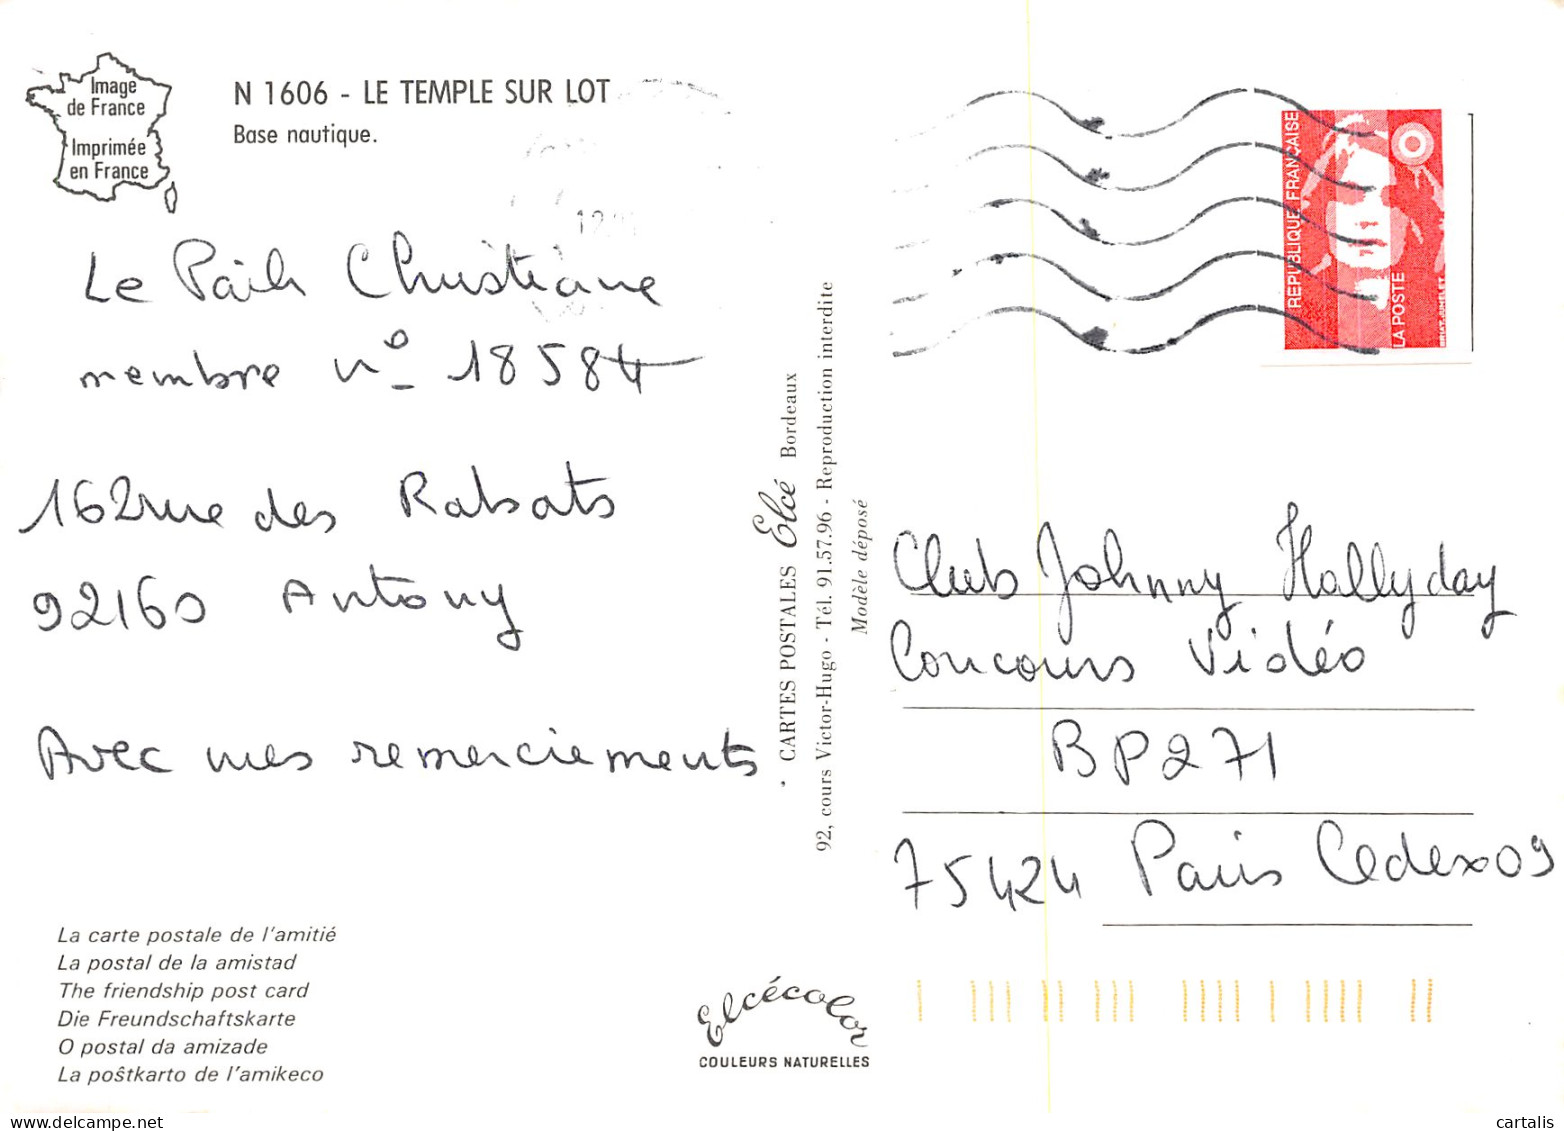 Image
de France
Imprimée
en France
N 1606 - LE TEMPLE SUR LOT
Base nautique.
Le Paih Christiane
membre n° 18584
162 rue des Rabats
92160 Antony
Avec mes remerciements
La carte postale de l'amitié
La postal de la amistad
The friendship post card
Die Freundschaftskarte
O postal da amizade
La poŝtkarto de l'amikeco
CARTES POSTALES Elcé Bordeaux
92, cours Victor-Hugo - Tél. 91.57.96 - Reproduction interdite
Modèle déposé
Elcécolor
COULEURS NATURELLES
REPUBLIQUE FRANÇAISE
LA POSTE
Club Johnny Hallyday
Concours Vidéo
BP 271
75424 Paris Cedex 09
cartalis